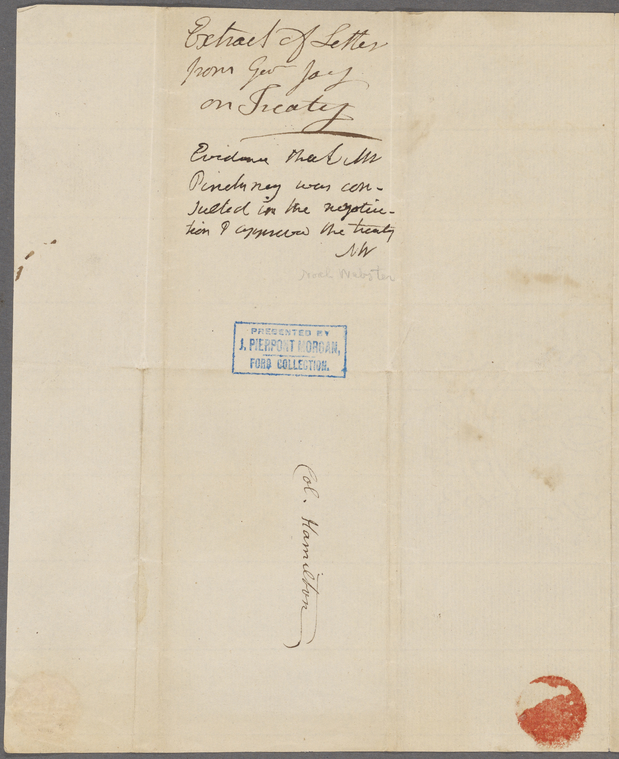 Extract of Letter
from Gov Jay
on Treaty
Evidence that Mr
Pinckney was con-
sulted in the negotia-
tion & approved the treaty
NW
Noah Webster
PRESENTED BY
J. PIERPONT MORGAN,
FORD COLLECTION.
Col. Hamilton